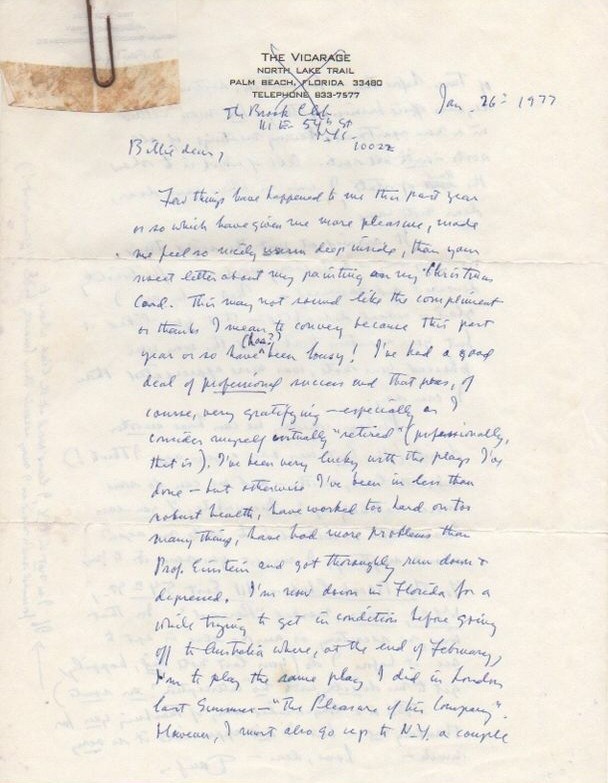 THE VICARAGE
NORTH LAKE TRAIL
PALM BEACH, FLORIDA 33480
TELEPHONE 833-7577
Jan. 26th 1977
The Brook Club
111 E. 54th St
N.Y.C.
10022
Billie dear,
Few things have happened to me this past year
or so which have given me more pleasure, made
me feel so nicely warm deep inside, than your
sweet letter about my painting on my Christmas
Card. This may not sound like the compliment
or thanks I mean to convey because this past
(has?)
year or so have ^ been lousy! I've had a good
deal of professional success and that was, of
course, very gratifying – especially as I
consider myself virtually "retired" (professionally,
that is). I've been very lucky with the plays I've
done – but otherwise I've been in less than
robust health, have worked too hard on too
many things, have had more problems than
Prof. Einstein and got thoroughly run down &
depressed. I'm now down in Florida for a
while trying to get in condition before going
off to Australia where, at the end of February,
I'm to play the same play I did in London
last Summer – "The Pleasure of his Company".
However, I must also go up to N.Y. a couple